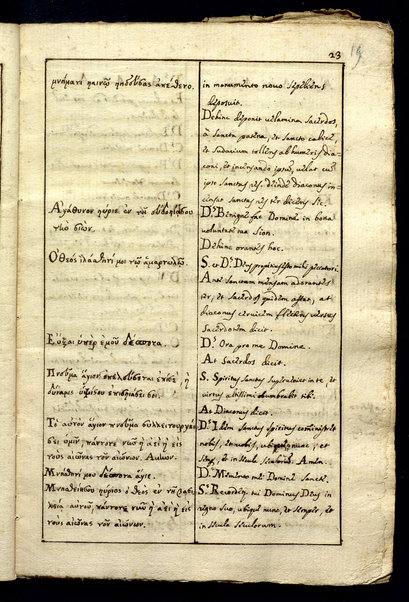 23
19
μνήματι καινῷ κηδεύσας ἀπέθετο.
Ἀγάθυνον κύριε ἐν τῇ εὐδοκίᾳ σου
τὴν σιών.
Ὁ θεὸς ἱλάσθητί μοι τῷ ἁμαρτωλῷ.
Εὖξαι ὑπὲρ ἐμοῦ δέσποτα.
Πνεῦμα ἅγιον ἐπελεύσεται ἐπὶ σὲ, καὶ
δύναμις ὑψίστου ἐπισκιάσει σοι.
Τὸ αὐτὸν ἅγιον πνεῦμα συλλειτουργή
σει ὑμῖν, πάντοτε νῦν καὶ ἀεὶ καὶ εἰς
τοὺς αἰῶνας τῶν αἰώνων. Ἀμήν.
Μνήσθητί μου δέσποτα ἅγιε.
Μνησθείη σου κύριος ὁ θεὸς ἐν τῇ βασι
λείᾳ αὐτοῦ, πάντοτε νῦν καὶ ἀεὶ καὶ εἰς
τοὺς αἰῶνας τῶν αἰώνων.
in monumento novo sepeliens
deposuit.
Dehinc deponit velamina Sacerdos,
à Sancta patena, et Sancto calice,
et Sudarium tollens ab humeris dia-
coni, et incensando ipsum, velat cum
ipso Sanctas res. deinde diaconus in-
censat Sanctas res ter dicens Sic.
D.s Benigne fac Domine in bona
voluntate tua Sion.
Dehinc orans hoc.
S. et D.s Deus propitius esto mihi peccatori.
Ante Sanctam mensam adorantes
ter, et Sacerdos quidem astat, at
diaconus cervicem flectens versus
Sacerdotem dicit.
D.s Ora pro me Domine.
At Sacerdos dicit.
S. Spiritus Sanctus superveniet in te, et
virtus altissimi obumbrabit tibi.
At Diaconus dicit.
D.s Idem Sanctus Spiritus comministret
nobis, ubique nunc, et
semper, et in secula seculorum. Amen.
D.s Memento mei Domine Sancte.
S.s Recordetur tui Dominus Deus in
regno suo, ubique nunc, et semper, et
in secula seculorum.